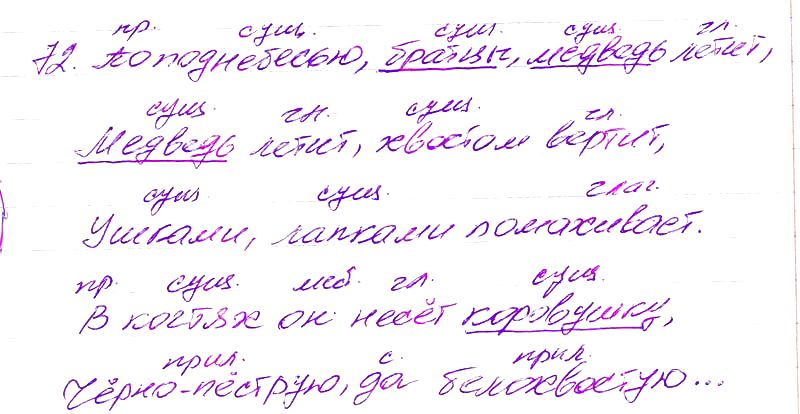 пр. сущ. сущ. сущ. гл.
72. По поднебесью, братцы, медведь летит,
сущ. гл. сущ. гл.
Медведь летит, хвостом вертит,
сущ. сущ. глаг.
Ушками, лапками помахивает.
пр. сущ. мес. гл. сущ.
В когтях он несёт коровушку,
прил. с. прил.
Чёрно-пёструю, да белохвостую...